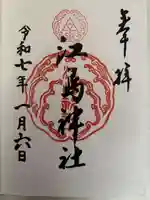 奉拝
江島神社
令和七年一月六日